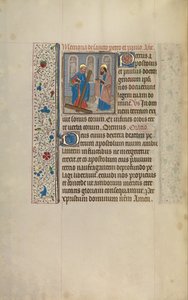 Memoria de sanctis petro et paulo An̄
Petrus a
postolus
et paulus docto
gencium ipsi
nos docuerunt
legem tuam do
mine. In
omnem ter
ram exiuit
sonus eorum. Et in fines orbis ter
re verba eorum. Oremus. Oratio
Deus cuius dextera beatum pe
trum apostolum
in fluctibus ne mergeretur
erexit et co apostolum eius paulum
tercio naufragantem de profundo pe
lagi liberauit. exaudi nos propicius
et concede ut amborum meritis eter
nitatis gloriam consequamur. Per
xpristum dominum nostrum Amen